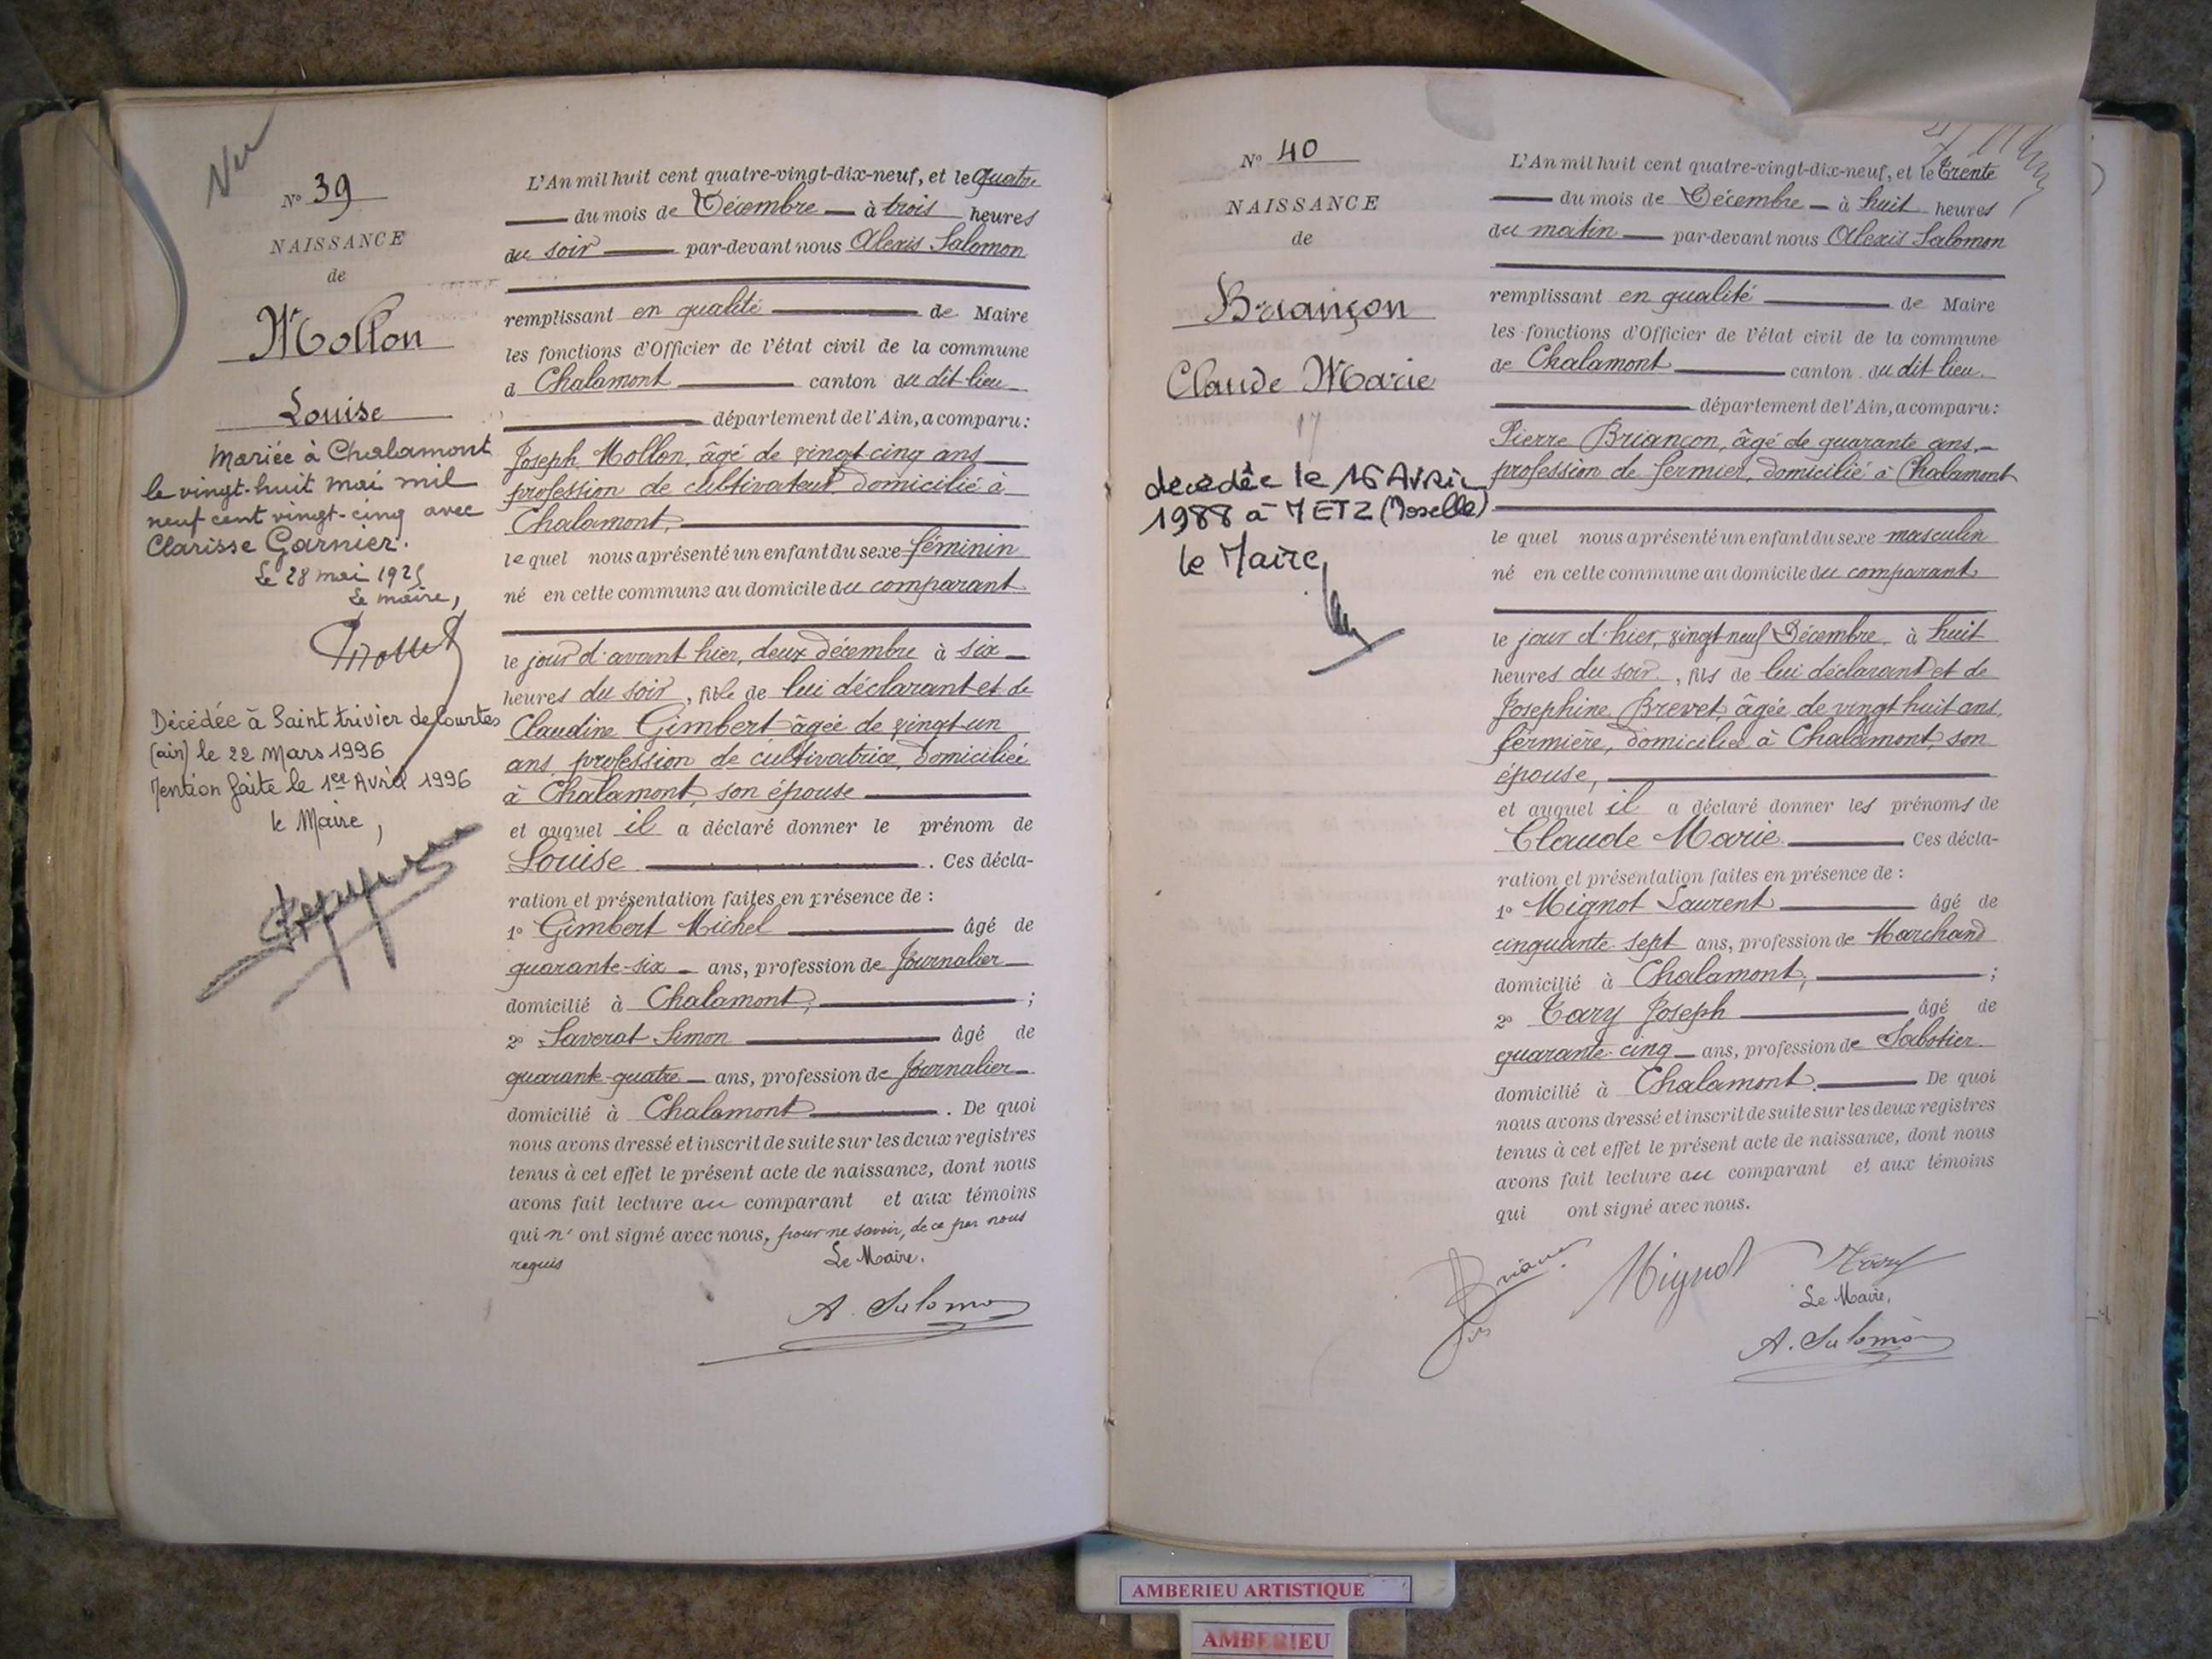 Vu
N° 39
NAISSANCE
de
Mollon
Louise
Mariée à Chalamont
le vingt-huit mai mil
neuf cent vingt-cinq avec
Clarisse Garnier.
Le 28 mai 1925
Le maire,
Décédée à Saint trivier de Courtes
(ain) le 22 Mars 1996
Mention faite le 1er Avril 1996
le Maire,
L'An mil huit cent quatre-vingt-dix-neuf, et le quatre
du mois de Décembre à trois heures
du soir par-devant nous Alexis Salomon
remplissant en qualité de Maire
les fonctions d'Officier de l'état civil de la commune
d Chalamont canton du dit lieu
département de l'Ain, a comparu:
Joseph Mollon, âgé de vingt cinq ans
profession de cultivateur domicilié à
Chalamont,
lequel nous a présenté un enfant du sexe féminin
né en cette commune au domicile du comparant
le jour d'avant hier, deux décembre à six
heures du soir, fille de lui déclarant et de
Claudine Gimbert âgée de vingt un
ans, profession de cultivatrice, domiciliée
à Chalamont, son épouse
et auquel il a déclaré donner le prénom de
Louise . Ces décla-
ration et présentation faites en présence de :
1° Gimbert Michel âgé de
quarante-six ans, profession de Journalier
domicilié à Chalamont, ;
2° Saverat Simon âgé de
quarante-quatre ans, profession de Journalier
domicilié à Chalamont . De quoi
nous avons dressé et inscrit de suite sur les deux registres
tenus à cet effet le présent acte de naissance, dont nous
avons fait lecture au comparant et aux témoins
qui n'ont signé avec nous, pour ne savoir, de ce par nous
requis Le Maire.
A. Salomon
N° 40
NAISSANCE
de
Briançon
Claude Marie
17
decedée le 16 Avril
1988 à METZ (Moselle)
le Maire
L'An mil huit cent quatre-vingt-dix-neuf, et le trente
du mois de Décembre à huit heures
du matin par-devant nous Alexis Salomon
remplissant en qualité de Maire
les fonctions d'Officier de l'état civil de la commune
de Chalamont canton du dit lieu
département de l'Ain, a comparu:
Pierre Briançon, âgé de quarante ans,
profession de fermier, domicilié à Chalamont
le quel nous a présenté un enfant du sexe masculin
né en cette commune au domicile du comparant
le jour d'hier, vingt neuf Décembre, à huit
heures du soir, fils de lui déclarant et de
Josephine Brevet, âgée de vingt huit ans,
fermière, domiciliée à Chalamont, son
épouse,
et auquel il a déclaré donner les prénoms de
Claude Marie Ces décla-
ration et présentation faites en présence de :
1° Mignot Laurent âgé de
cinquante-sept ans, profession de Marchand
domicilié à Chalamont, ;
2° Tary Joseph âgé de
quarante-cinq ans, profession de Sabotier
domicilié à Chalamont. De quoi
nous avons dressé et inscrit de suite sur les deux registres
tenus à cet effet le présent acte de naissance, dont nous
avons fait lecture au comparant et aux témoins
qui ont signé avec nous.
Mignot Tary
Le Maire,
A. Salomon
AMBERIEU ARTISTIQUE
AMBERIEU